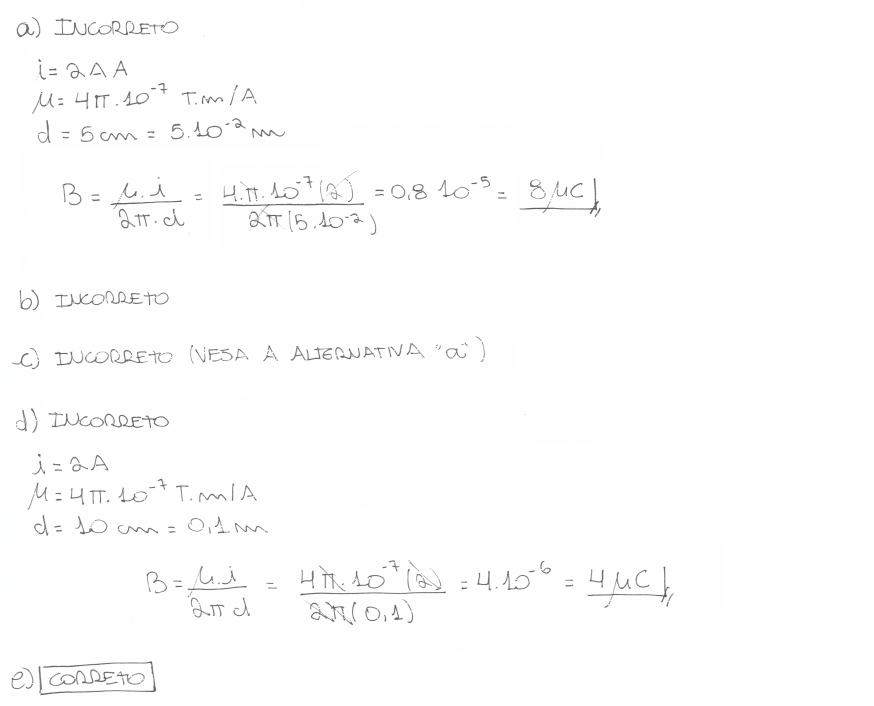 a) INCORRETO
i = 2 A
μ = 4π . 10⁻⁷ T.m/A
d = 5 cm = 5.10⁻² m
B = μ.i / 2π.d = 4.π.10⁻⁷(2) / 2π(5.10⁻²) = 0,8 10⁻⁵ = 8 μC
b) INCORRETO
c) INCORRETO (VEJA A ALTERNATIVA "a")
d) INCORRETO
i = 2A
μ = 4π. 10⁻⁷ T.m/A
d = 10 cm = 0,1 m
B = μ.i / 2π d = 4π.10⁻⁷(2) / 2π(0,1) = 4.10⁻⁶ = 4 μC
e) CORRETO